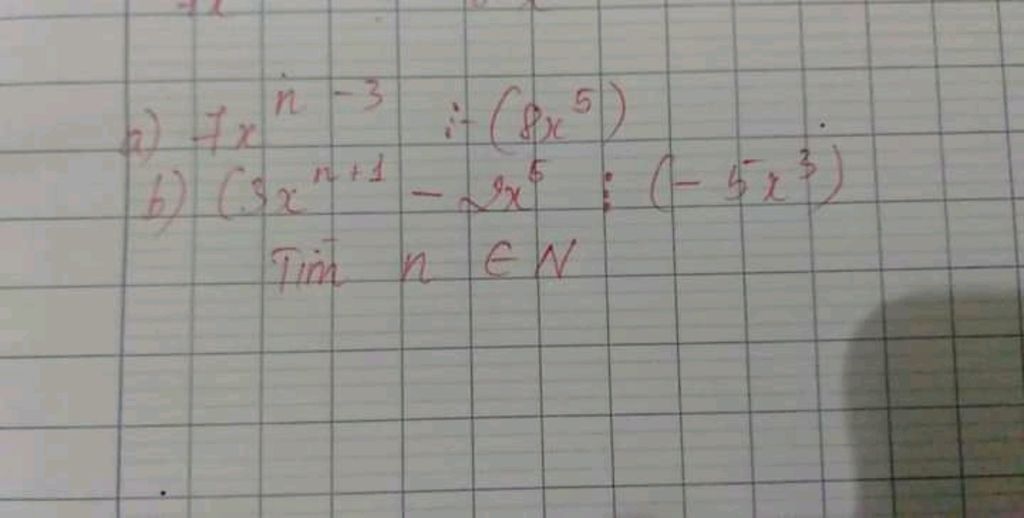 a) 7x^{n-3} ⋮ (8x^5)
b) (3x^{n+1} - 2x^5 ⋮ (- 5x^3)
Tìm n ∈ N